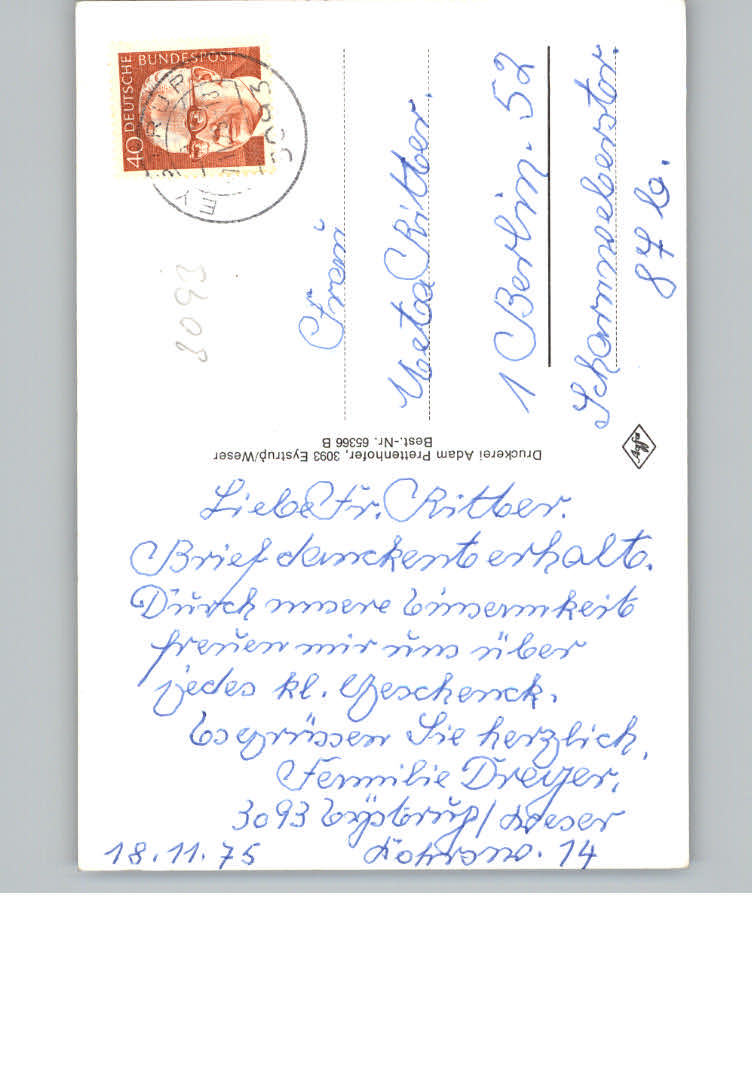 DEUTSCHE BUNDESPOST
40
3093
Frau
Meta Ritter.
1 Berlin. 52
Scharnweberstr.
87 b.
Druckerei Adam Prettenhofer, 3093 Eystrup/Weser
Best.-Nr. 65366 B
Agfa
Liebe Fr. Ritter.
Brief danckent erhalt.
Durch unsere Einsamkeit
freuen mir uns über
jedes kl. Geschenck.
Es grüssen Sie herzlich,
Familie Dreyer.
3093 Eystrup/Weser
18.11.75 14